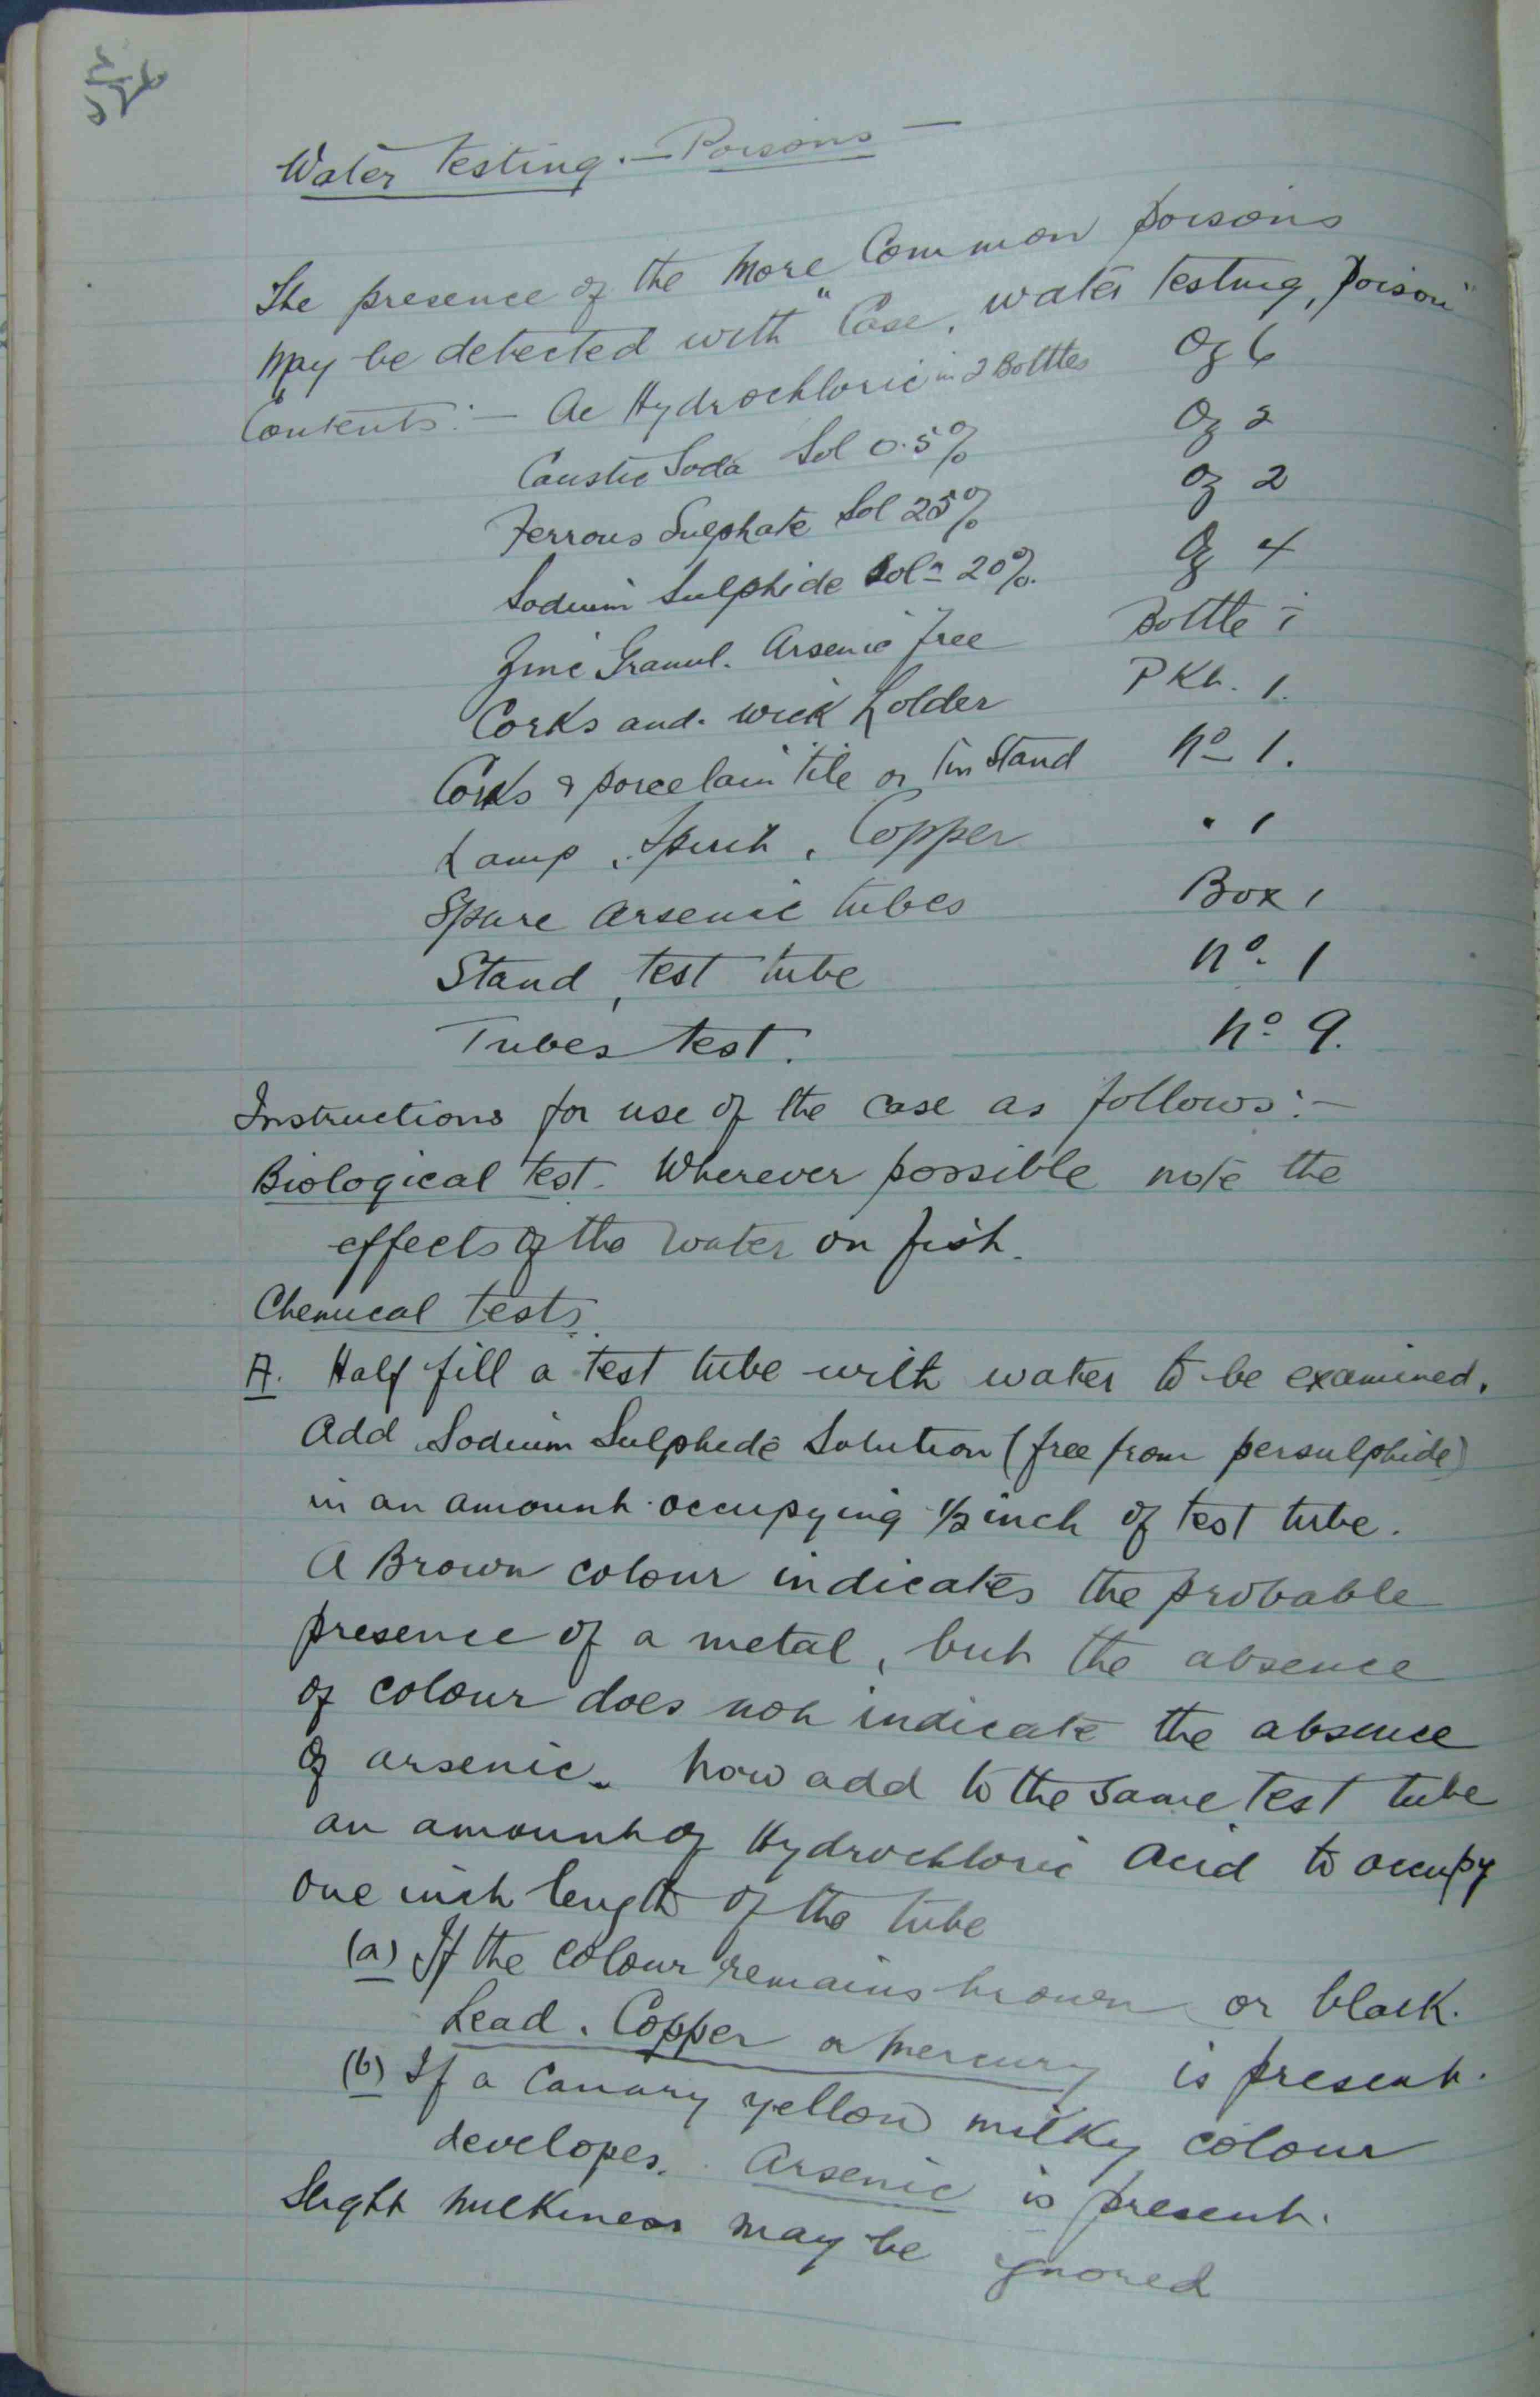 Water Testing. — Poisons —
The presence of the More Common poisons
May be detected with "Case, water testing, poison"
Contents :— Ac Hydrochloric in 2 Bottles Oz 6
Caustic Soda Sol 0.5% Oz 2
Ferrous Sulphate Sol 25% Oz 2
Sodium Sulphide Soln 20%. Oz 4
Zinc Granul. Arsenic free Bottle i
Corks and. wick holder Pkt. 1.
Corks & porcelain tile on tin Stand No 1.
Lamp, Spirit, Copper " 1
Spare Arsenic tubes Box 1
Stand, test tube No. 1
Tubes test. No 9.
Instructions for use of the case as follows :—
Biological test. Wherever possible note the
effects of the water on fish.
Chemical tests.
A. Half fill a test tube with water to be examined.
Add Sodium Sulphide Solution (free from persulphide)
in an amount occupying 1/2 inch of test tube.
A Brown colour indicates the probable
presence of a metal, but the absence
of colour does not indicate the absence
of arsenic. Now add to the same test tube
an amount of Hydrochloric Acid to occupy
one inch length of the tube
(a) If the colour remains brown or black.
Lead, Copper or Mercury is present.
(b) If a Canary yellow milky colour
developes. Arsenic is present.
Slight milkiness may be ignored